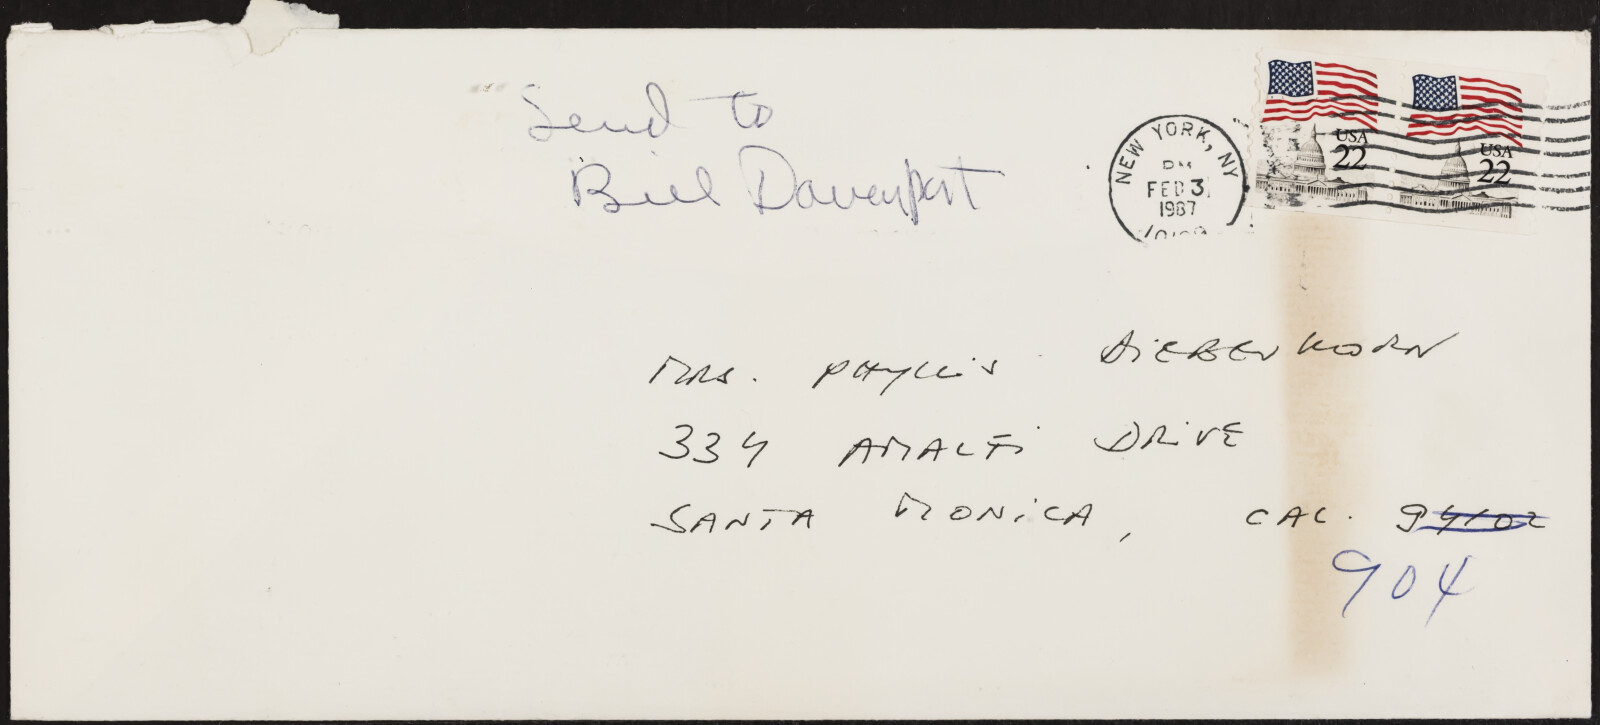 Send to
Bill Davenport
NEW YORK, NY
PM
FEB 3
1987
USA
22
USA
22
MRS. PHYLLIS DIEBENKORN
334 AMALFI DRIVE
SANTA MONICA, CAL. 94102
904